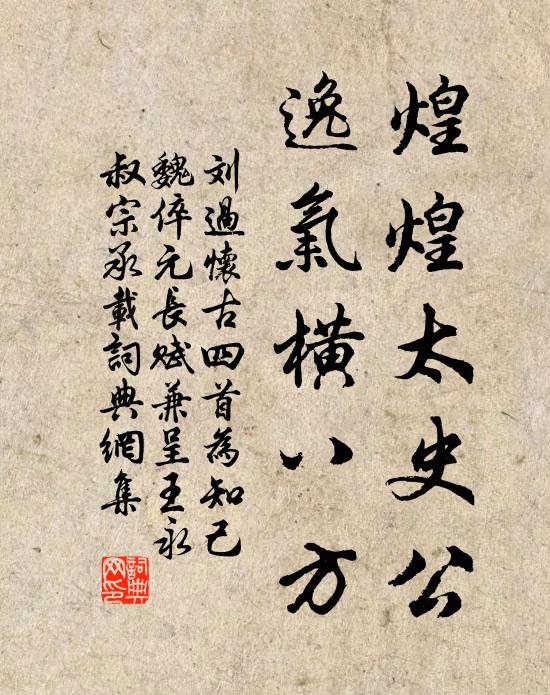 煌煌太史公
逸氣橫八方
刘過懷古四首為知己
魏倅元長賦兼呈王永
叔宗丞載詞典網集
詞典网印